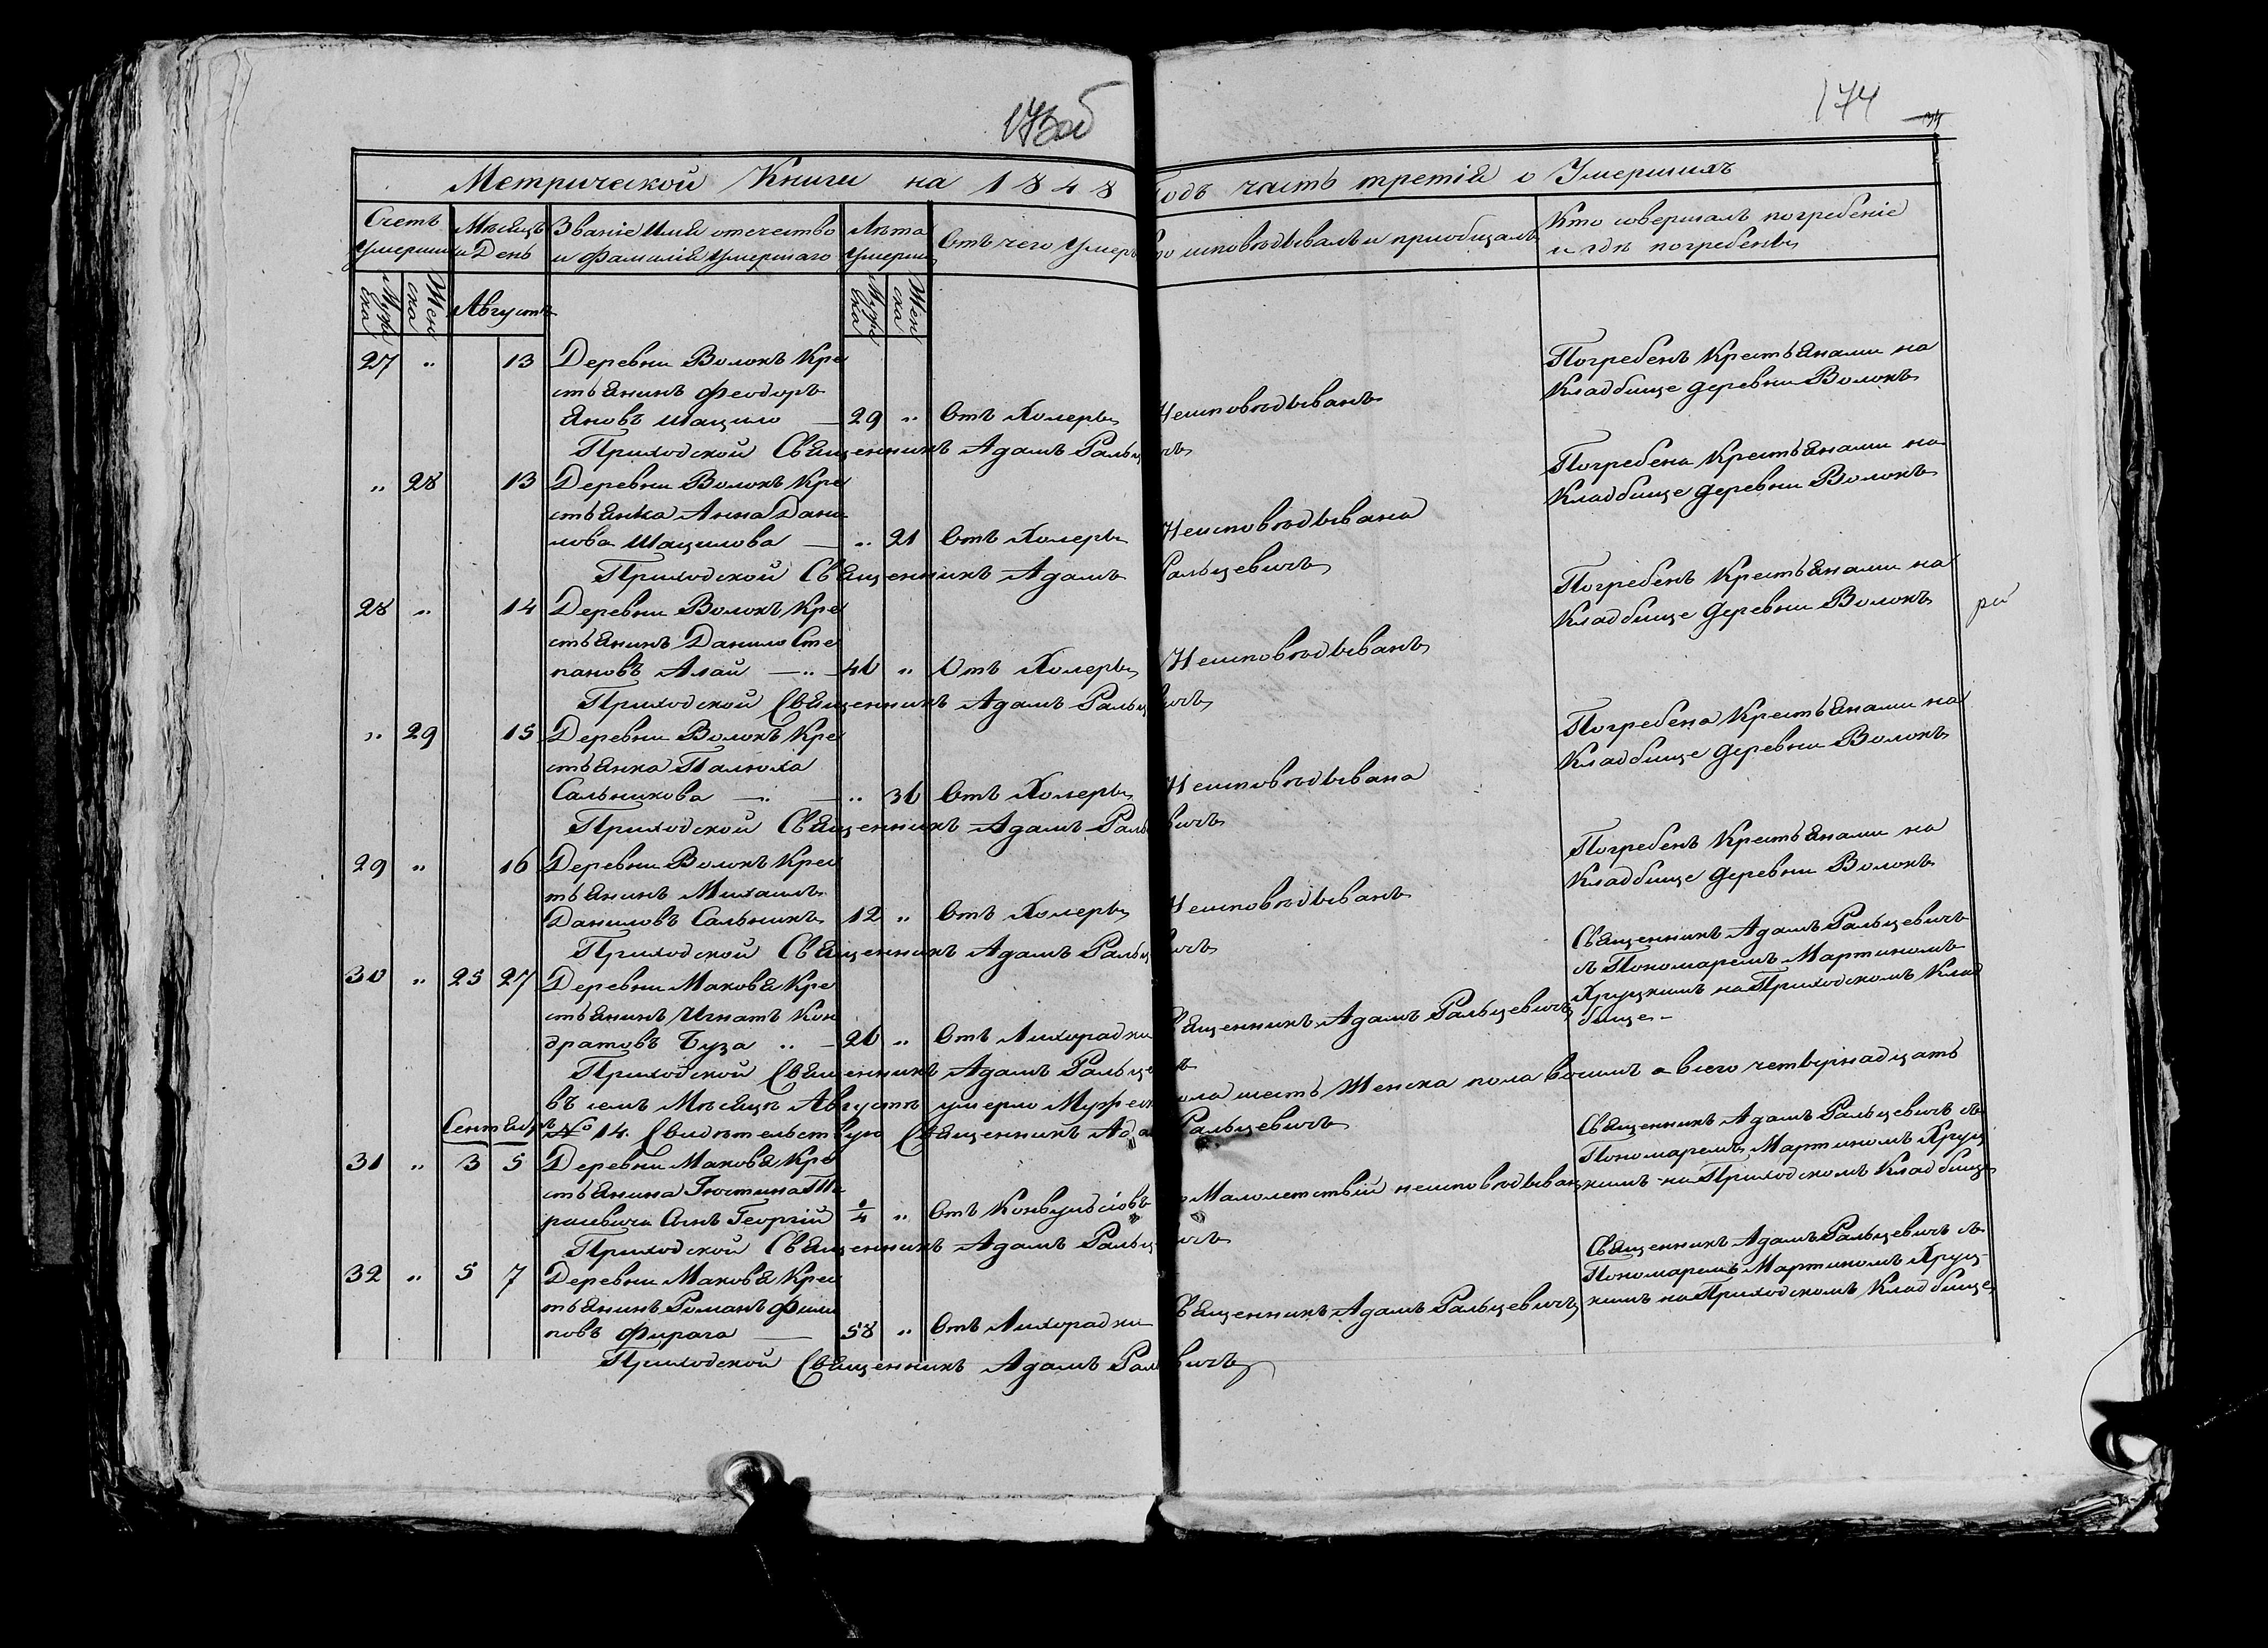 173об
174
Метрической Книги на 1848 Годъ часть третія о Умершихъ
Счетъ Умершихъ
Мѣсяцъ и День
Званіе Имя отечество и Фамилія Умершаго
Лѣта Умерших
Отъ чего Умеръ
Кто исповѣдывалъ и приобщалъ
Кто совершалъ погребеніе и гдѣ погребены
Муж ска
Жен ска
Августъ
Муж ска
Жен ска
27 „ 13 Деревни Волокъ Кре
стьянинъ Феодоръ
Яновъ Шацило — 29 „ Отъ Холеры Неисповѣдыванъ
Погребенъ Крестьянами на
Кладбище деревни Волокъ
Приходской Священникъ Адамъ Ральцевичъ
„ 28 13 Деревни Волокъ Кре
стьянка Анна Дани
лова Шацилова — „ 21 Отъ Холеры Неисповѣдывана
Погребена Крестьянами на
Кладбище деревни Волокъ
Приходской Священникъ Адамъ Ральцевичъ
28 „ 14 Деревни Волокъ Кре
стьянинъ Данило Сте
пановъ Алай — „ 46 „ Отъ Холеры Неисповѣдыванъ
Погребенъ Крестьянами на
Кладбище деревни Волокъ
Приходской Священникъ Адамъ Ральцевичъ
„ 29 15 Деревни Волокъ Кре
стьянка Палюха
Сальникова — „ — „ 36 Отъ Холеры Неисповѣдывана
Погребена Крестьянами на
Кладбище деревни Волокъ
Приходской Священникъ Адамъ Ральцевичъ
29 „ 16 Деревни Волокъ Крес
тьянинъ Михаилъ
Даниловъ Сальникъ 12 „ Отъ Холеры Неисповѣдыванъ
Погребенъ Крестьянами на
Кладбище деревни Волокъ
Приходской Священникъ Адамъ Ральцевичъ
30 „ 25 27 Деревни Маковя Кре
стьянинъ Игнатъ Кон
дратовъ Буза „ — 26 „ Отъ Лихорадки Священникъ Адамъ Ральцевичъ
Священникъ Адамъ Ральцевичъ
съ Пономаремъ Мартиномъ
Хруцкимъ на Приходскомъ Клад
бище —
Приходской Священникъ Адамъ Ральцевичъ
въ семъ Мѣсяцѣ Августѣ умерло Мужеск пола шесть Женска пола восимъ а всего четвернадцать
№ 14. Свидѣтельствую Священникъ Адамъ Ральцевичъ
Сентябрь
31 „ 3 5 Деревни Маковя Кре
стьянина Іюстина
Сынъ Георгій ¼ „ Отъ Конвульсіовъ по Малолетствію неисповѣдыван
Священникъ Адамъ Ральцевичъ съ
Пономаремъ Мартиномъ Хруц
кимъ на Приходскомъ Кладбище
Приходской Священникъ Адамъ Ральцевичъ
32 „ 5 7 Деревни Маковя Крес
тьянинъ Романъ Фили
повъ Фирага — 58 „ Отъ Лихорадки Священникъ Адамъ Ральцевичъ
Священникъ Адамъ Ральцевичъ съ
Пономаремъ Мартиномъ Хруц
кимъ на Приходскомъ Кладбище
Приходской Священникъ Адамъ Ральцевичъ